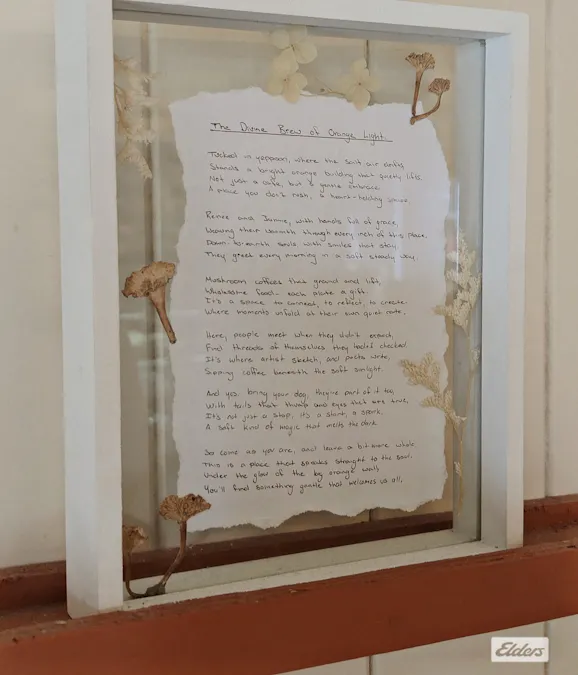 The Divine Brew of Orange Light.
Tucked in yeppoon, where the salt air drifts,
Stands a bright orange building that quietly lifts.
Not just a cafe, but a gentle embrace
A place you don't rush, a heart-holding space
Renee and Jannie, with hands full of grace,
Weaving their warmth through every inch of this place.
Down-to-earth souls with smiles that stay
They greet every morning in a soft steady way.
Mushroom coffees that ground and lift,
Wholesome food - each plate a gift.
It's a space to connect, to reflect, to create.
Where moments unfold at their own quiet rate.
Here, people meet when they didn't expect,
Find threads of themselves they hadn't checked
It's where artist sketch, and poets write,
Sipping coffee beneath the soft sunlight.
And yes bring your dog, they're part of it too,
With tails that thump and eyes that are true,
It's not just a stop, it's a start, a spark,
A soft kind of magic that melts the dark
So come as you are, and leave a bit more whole
This is a place that speaks straight to the soul.
Under the glow of the big orange wall,
You'll find something gentle that welcomes us all.
Elders